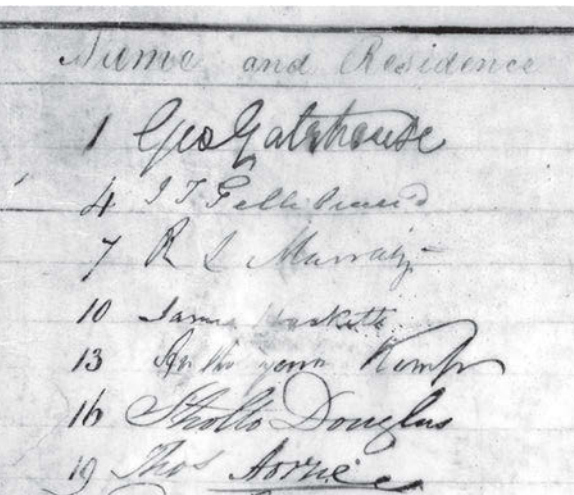 Name and Residence
1 Geo Gatehouse
4 J T Gellibrand
7 R L Murray
10 James Hackett
13 Kemp
16 Sholto Douglas
19 Thos